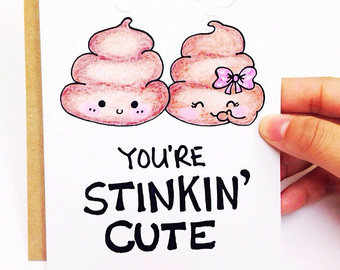 YOU'RE
STINKIN'
CUTE